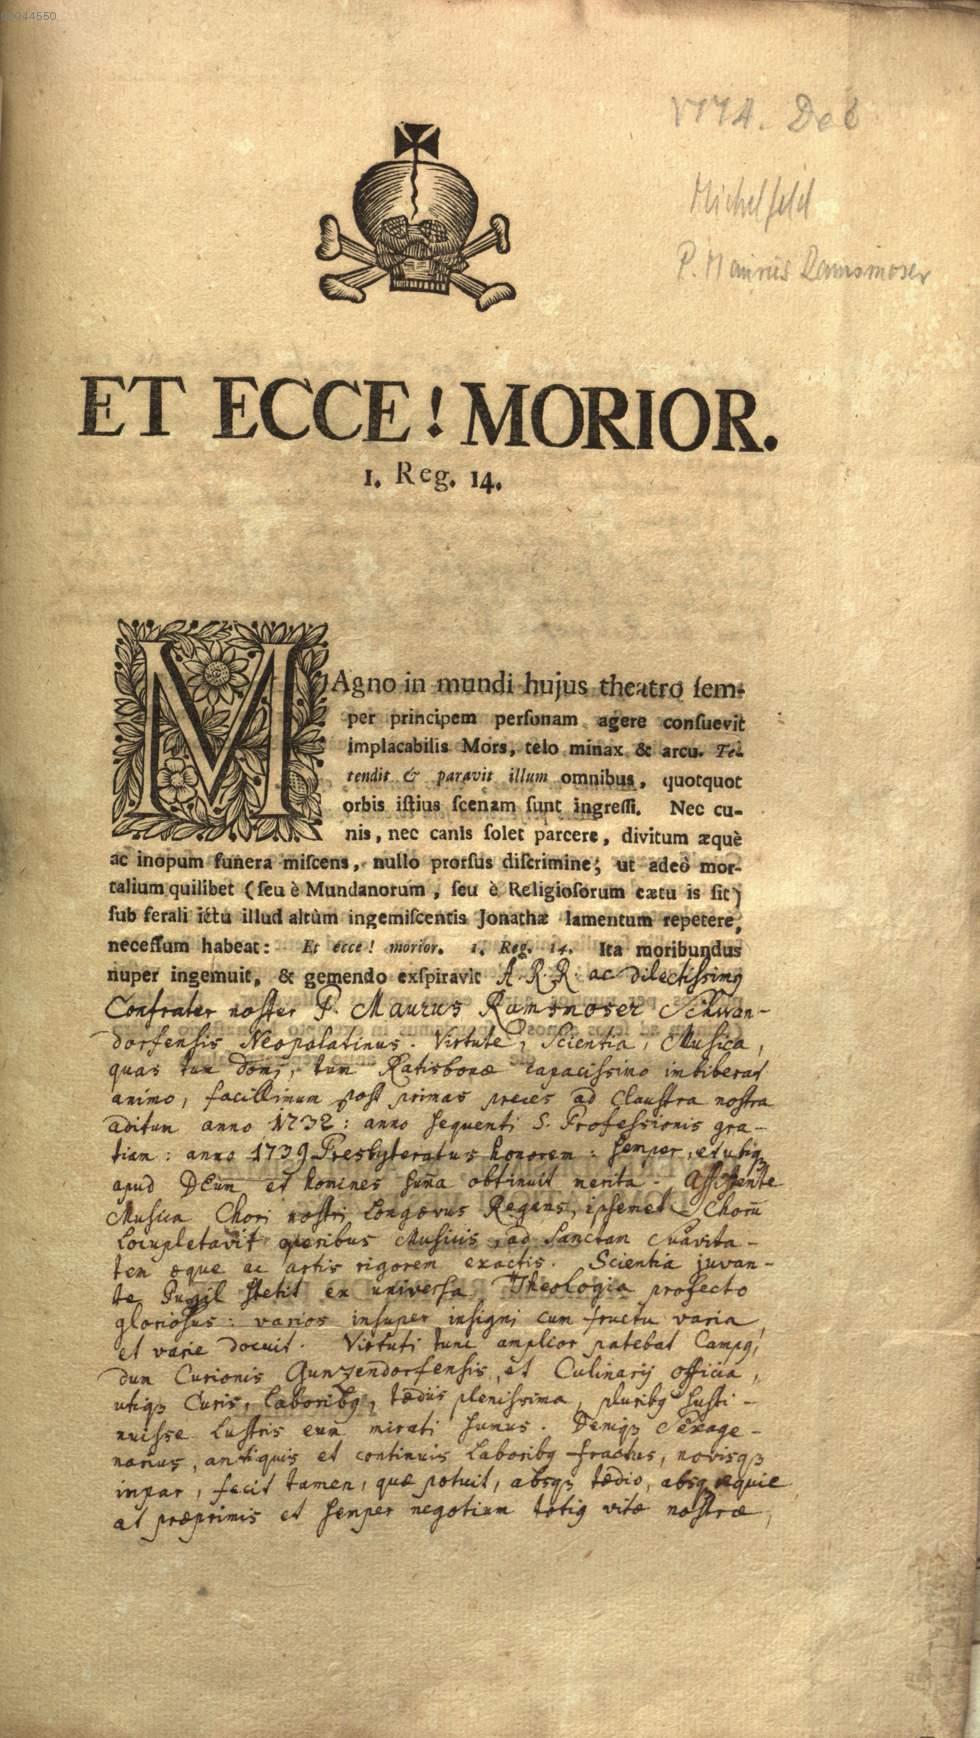 00944550
1774. Dec
Michelfeld
P. Maurus Ramsmoser
ET ECCE! MORIOR.
1. Reg. 14.
MAgno in mundi hujus theatro ſem-
per principem perſonam agere conſuevit
implacabilis Mors, telo minax & arcu. Te-
tendit & paravit illum omnibus, quotquot
orbis iſtius ſcenam ſunt ingreſſi. Nec cu-
nis, nec canis ſolet parcere, divitum æquè
ac inopum funera miſcens, nullo prorſus diſcrimine; ut adeò mor-
talium quilibet (ſeu è Mundanorum, ſeu è Religioſorum cætu is ſit)
ſub ferali ictu illud altùm ingemiſcentis Jonathæ lamentum repetere,
neceſſum habeat: Et ecce! morior. 1. Reg. 14. Ita moribundus
nuper ingemuit, & gemendo exſpiravit A. R. R. ac dilectissimg
Confrater noster P. Maurus Ramsmoser Schwan-
dorfensis Neopalatinus. Virtute, Scientia, Musica,
quas tum domi, tum Ratisbonæ capacissimo imbiberat
animo, facillimum post primas preces ad Claustra nostra
aditum anno 1732: anno sequenti S. Professionis gra-
tiam: anno 1739 Presbyteratus honorem: semper, et ubiqꝫ
apud DEum et homines sum̄a obtinuit merita. Assistente
Musica Chori nostri Longævus Regens, ipsemet Chorū
locupletavit operibus Musicis, ad Sanctam suavita-
tem æque ac artis rigorem exactis. Scientia juvan-
te Pugil stetit ex universa Theologia profecto
gloriosus: varios insuper insigni cum fructu varia,
et varie docuit. Virtuti tunc amplior patebat Campg,
dum Curionis Gunzendorfensis, et Culinarij officia,
utiqꝫ Curis, laboribg, tædiis plenissima, pluribg susti-
nuisse lustris eum mirati sumus. Deniqꝫ Sexage-
narius, antiquis et continuis laboribg fractus, novisqꝫ
impar, fecit tamen, quæ potuit, absqꝫ tædio, absqꝫ requie
at præprimis et semper negotium totig vitæ nostræ,